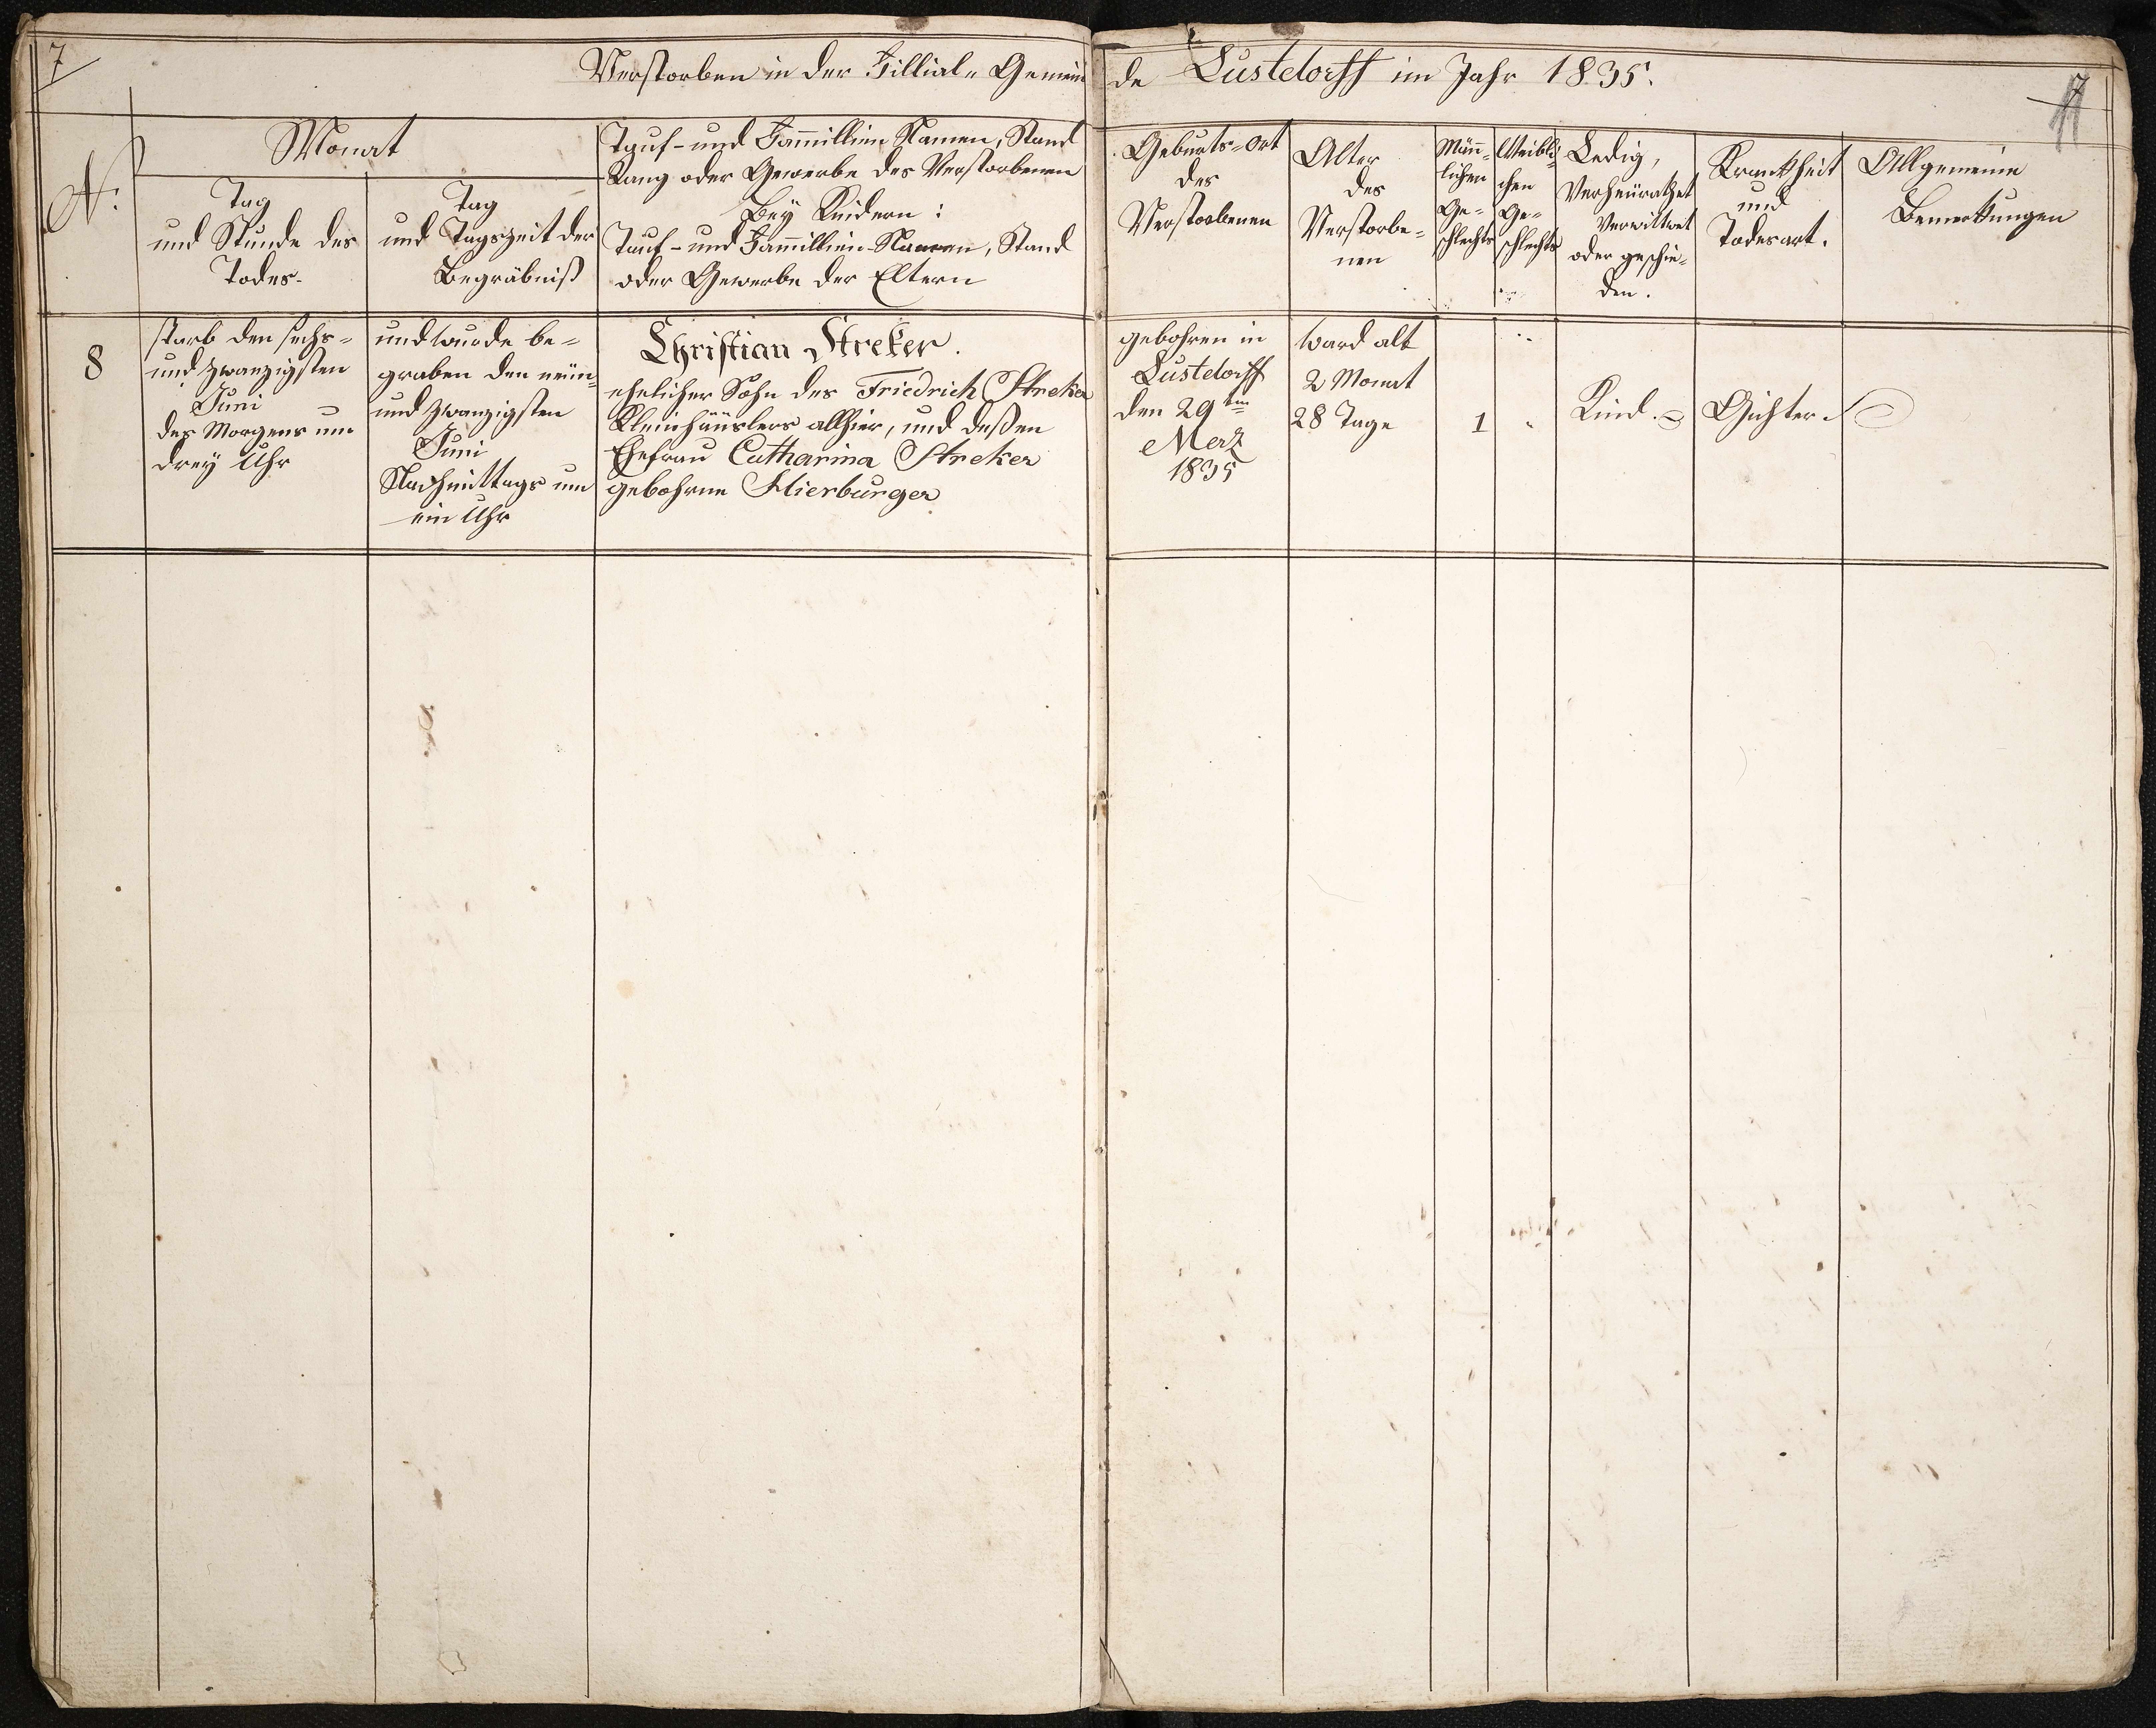 7
Verstorben in der Fillial-Gemeinde Lustdorff im Jahr 1835.
7
N:
Monat
Tag
und Stunde des
Todes.
Tag
und Tagszeit der
Begräbniß
Tauf- und Fam̅illien Namen, Stand
Rang oder Gewerbe des Verstorbenen
Bey Kindern:
Tauf- und Fam̅illien-Namen, Stand
oder Gewerbe der Eltern
Geburts-Ort
des
Verstorbenen
Alter
des
Verstorbe-
nen
Män̅-
lichen
Ge-
schlechts
Weibli-
chen
Ge-
schlechts
Ledig,
Verheürathet
Verwittwet
oder geschie-
den.
Krankheit
und
Todesart.
Allgemeine
Bemerkungen
8
starb den sechs-
und zwanzigsten
Juni
des Morgens um
drey Uhr
und wurde be-
graben den neün-
und zwanzigsten
Juni
Nachmittags um
ein Uhr
Christian Streker.
ehelicher Sohn des Friedrich Streker
Kleinhäuslers allhier, und deßen
Ehefrau Catharina Streker
gebohrne Hierburger
gebohren in
Lustdorff
den 29ten
Merz
1835
ward alt
2 Monat
28 Tage
1
Kind.
Gichter